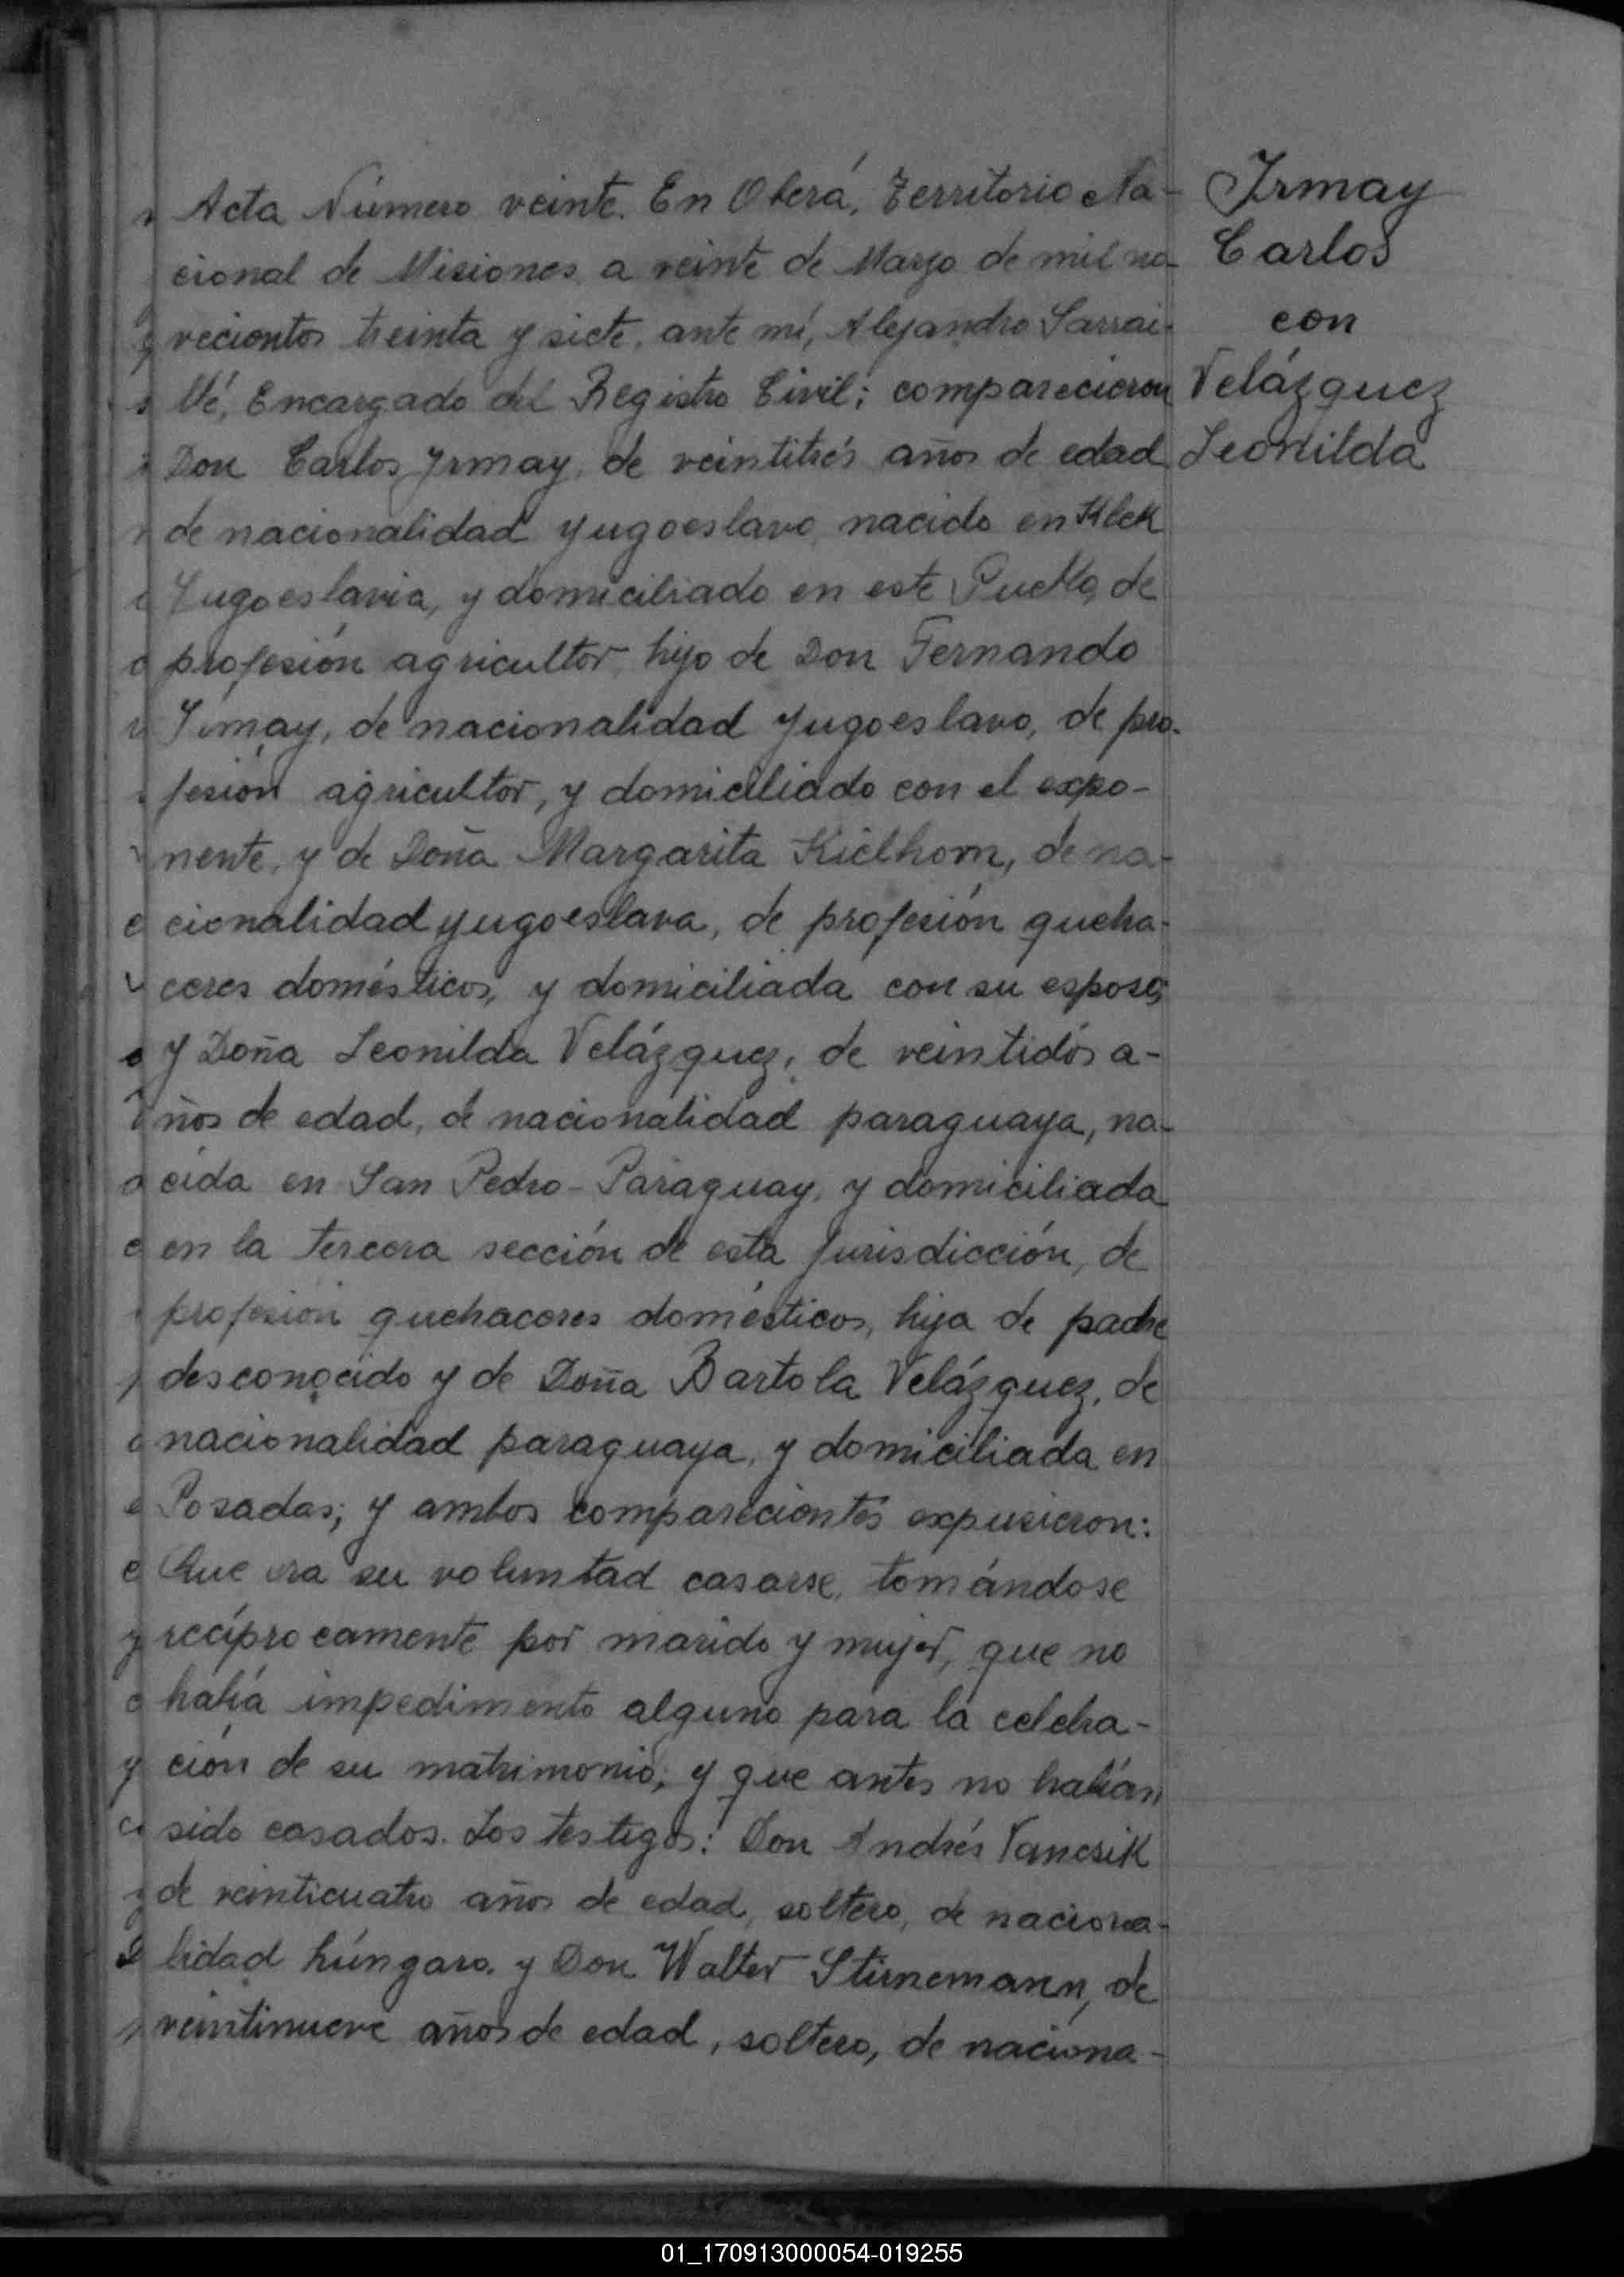 Acta Número veinte. En Oberá, Territorio Na-
cional de Misiones, a veinte de Marzo de mil no-
vecientos treinta y siete, ante mí, Alejandro Sarrai-
llé, Encargado del Registro Civil; comparecieron
Don Carlos Irmay, de veintitrés años de edad
de nacionalidad yugoeslavo, nacido en Klek
Yugoeslavia, y domiciliado en este Pueblo, de
profesión agricultor, hijo de Don Fernando
Irmay, de nacionalidad yugoeslavo, de pro-
fesión agricultor, y domiciliado con el expo-
nente, y de Doña Margarita Kielhorn, de na-
cionalidad yugoeslava, de profesión queha-
ceres domésticos, y domiciliada con su esposo;
y Doña Leonilda Velázquez, de veintidós a-
ños de edad, de nacionalidad paraguaya, na-
cida en San Pedro - Paraguay, y domiciliada
en la tercera sección de esta Jurisdicción, de
profesión quehaceres domésticos, hija de padre
desconocido y de Doña Bartola Velázquez, de
nacionalidad paraguaya, y domiciliada en
Posadas; y ambos comparecientes expusieron:
Que era su voluntad casarse, tomándose
recíprocamente por marido y mujer, que no
había impedimento alguno para la celebra-
ción de su matrimonio; y que antes no habían
sido casados. Los testigos: Don Andrés Vancsik
de veinticuatro años de edad, soltero, de naciona-
lidad húngaro. y Don Walter Stirnemann, de
veintinueve años de edad, soltero, de naciona-
Irmay
Carlos
con
Velázquez
Leonilda
01_170913000054-019255